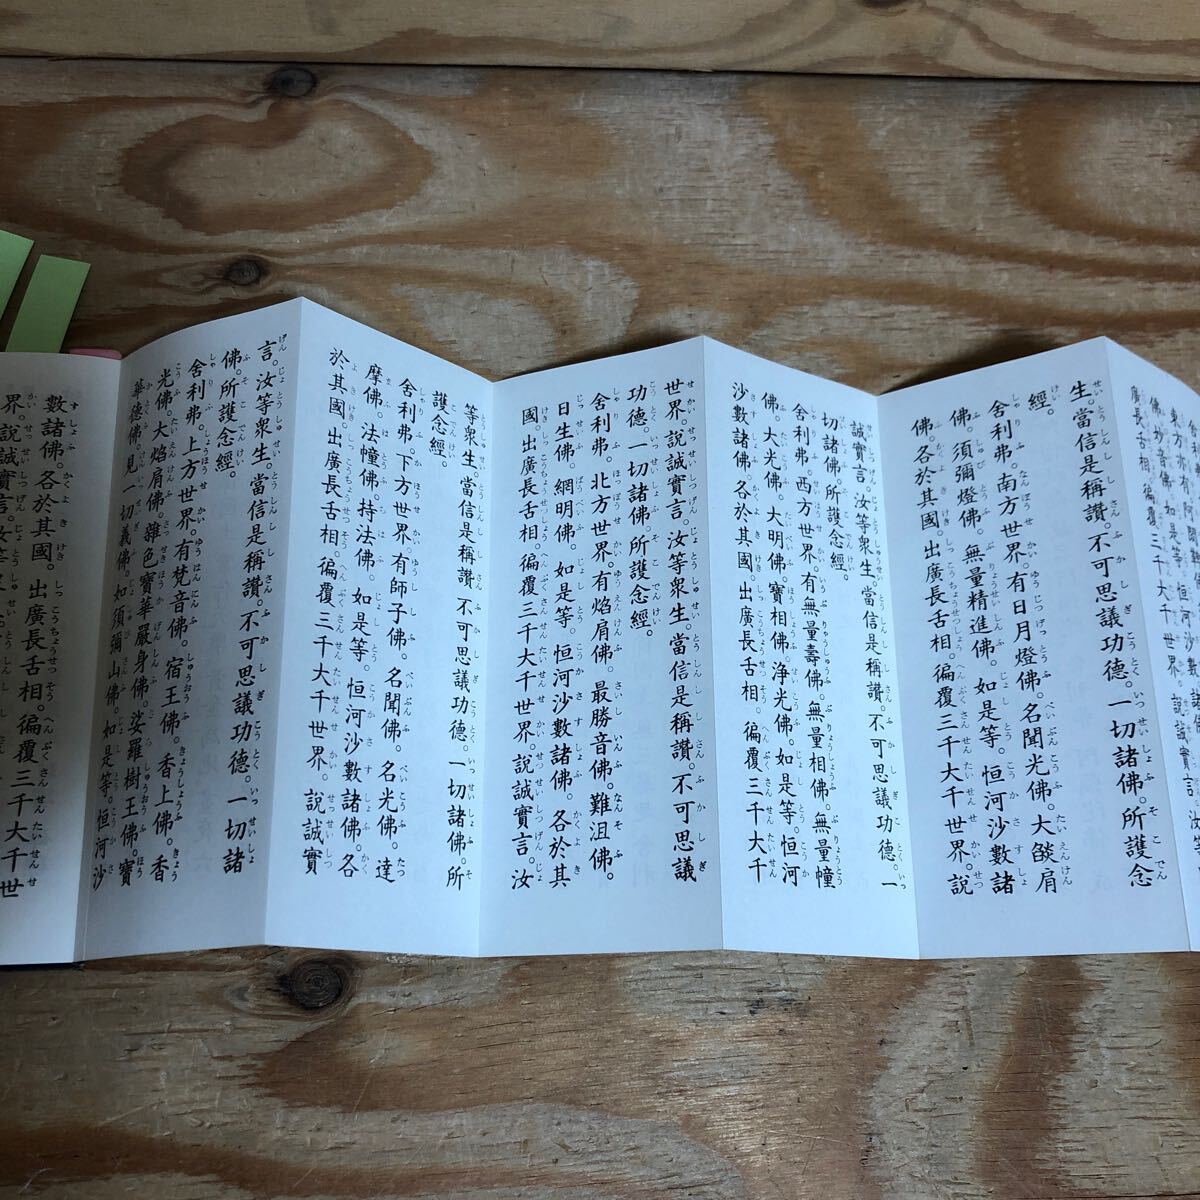 舍利弗。
東方亦有。阿閦鞞佛。
佛。妙音佛。如是等。恒河沙數諸佛。
廣長舌相。徧覆三千大千世界。說誠實言。汝等
生。當信是稱讚。不可思議功德。一切諸佛。所護念
經。
舍利弗。南方世界。有日月燈佛。名聞光佛。大燄肩
佛。須彌燈佛。無量精進佛。如是等。恒河沙數諸
佛。各於其國。出廣長舌相。徧覆三千大千世界。說
誠實言。汝等衆生。當信是稱讚。不可思議功德。一
切諸佛。所護念經。
舍利弗。西方世界。有無量壽佛。無量相佛。無量幢
佛。大光佛。大明佛。寶相佛。淨光佛。如是等。恒河
沙數諸佛。各於其國。出廣長舌相。徧覆三千大千
世界。說誠實言。汝等衆生。當信是稱讚。不可思議
功德。一切諸佛。所護念經。
舍利弗。北方世界。有焰肩佛。最勝音佛。難沮佛。
日生佛。網明佛。如是等。恒河沙數諸佛。各於其
國。出廣長舌相。徧覆三千大千世界。說誠實言。汝
等衆生。當信是稱讚。不可思議功德。一切諸佛。所
護念經。
舍利弗。下方世界。有師子佛。名聞佛。名光佛。達
摩佛。法幢佛。持法佛。如是等。恒河沙數諸佛。各
於其國。出廣長舌相。徧覆三千大千世界。說誠實
言。汝等衆生。當信是稱讚。不可思議功德。一切諸
佛。所護念經。
舍利弗。上方世界。有梵音佛。宿王佛。香上佛。香
光佛。大焰肩佛。雜色寶華嚴身佛。娑羅樹王佛。寶
華德佛。見一切義佛。如須彌山佛。如是等。恒河沙
數諸佛。各於其國。出廣長舌相。徧覆三千大千世
界。說誠實言。汝等衆